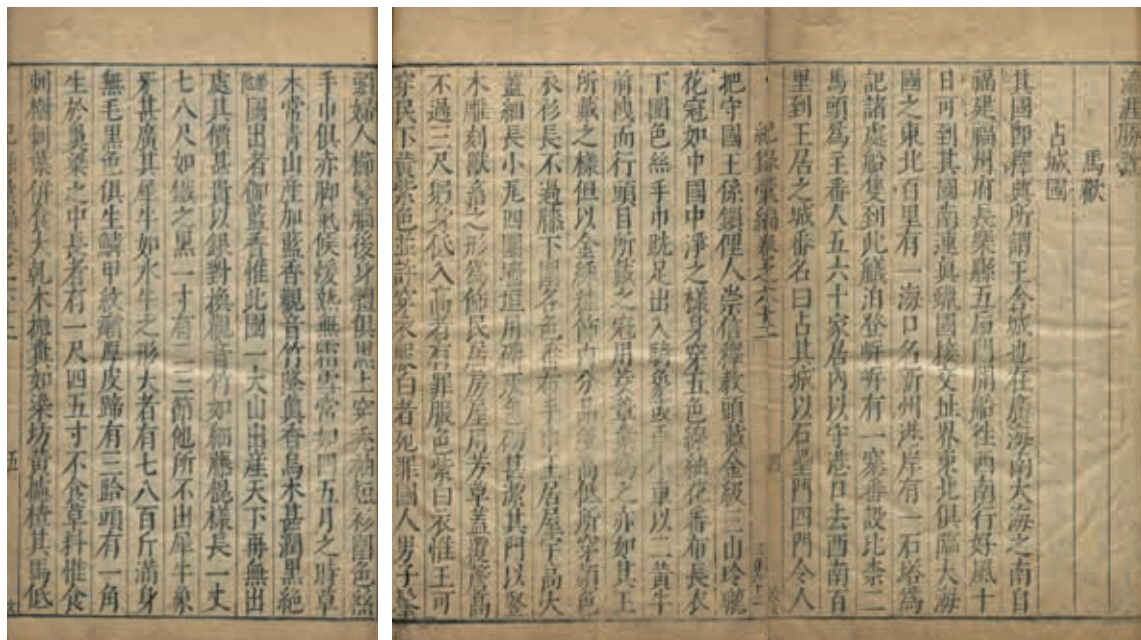 瀛涯勝覽
馬歡
占城國
其國即釋典所謂王舍城也在廣海南大海之南自
福建福州府長樂縣五虎門開船往西南行好風十
日可到其國南連真臘國接交趾界東北俱臨大海
國之東北百里有一海口名新州港岸有一石塔為
記諸處船隻到此艤泊登岸岸有一寨番設比柰二
馬頭為主番人五六十家居內以守港口去西南百
里到王居之城番名曰占其城以石壘門四門令人
紀錄彙編卷之六十二
把守國王係鎖俚人崇信釋教頭戴金鈒三山玲瓏
花冠如中國中淨之樣身穿五色線紬花番布長衣
下圍色絲手巾跣足出入騎象或乘小車以二黃牛
前拽而行頭目所戴之冠用茭葦葉為之亦如其王
所戴之樣但以金綵粧飾內分品級高低所穿顏色
衣衫長不過膝下圍各色番布手巾王居屋宇高大
蓋細長小瓦四圍墻垣用磚灰包砌甚潔其門以堅
木雕刻獸畜之形為飾民居房屋用茅草蓋覆簷高
不過三尺躬身低入者有罪服色紫白衣惟王可
穿民下黃紫色並許穿衣服白者死罪國人男子髼
頭婦人撮髻腦後身體俱黑上穿禿袖短衫圍色絲
手巾俱赤脚氣候煖熱無霜雪常如四五月之時草
木常青山產加藍香觀音竹降真香烏木甚潤黑絶
勝國出者伽藍香惟此國一大山出產天下再無出
處其價甚貴以銀對換觀音竹如細藤棍樣長一丈
七八尺如鐵之黑一寸有二三節他所不出犀牛象
牙甚廣其犀牛如水牛之形大者有七八百斤滿身
無毛黑色俱生鱗甲紋癩厚皮蹄有三跲頭有一角
生於鼻梁之中長者有一尺四五寸不食草料惟食
刺樹刺葉併食大乾木拋糞如染坊黃櫨楂其馬低